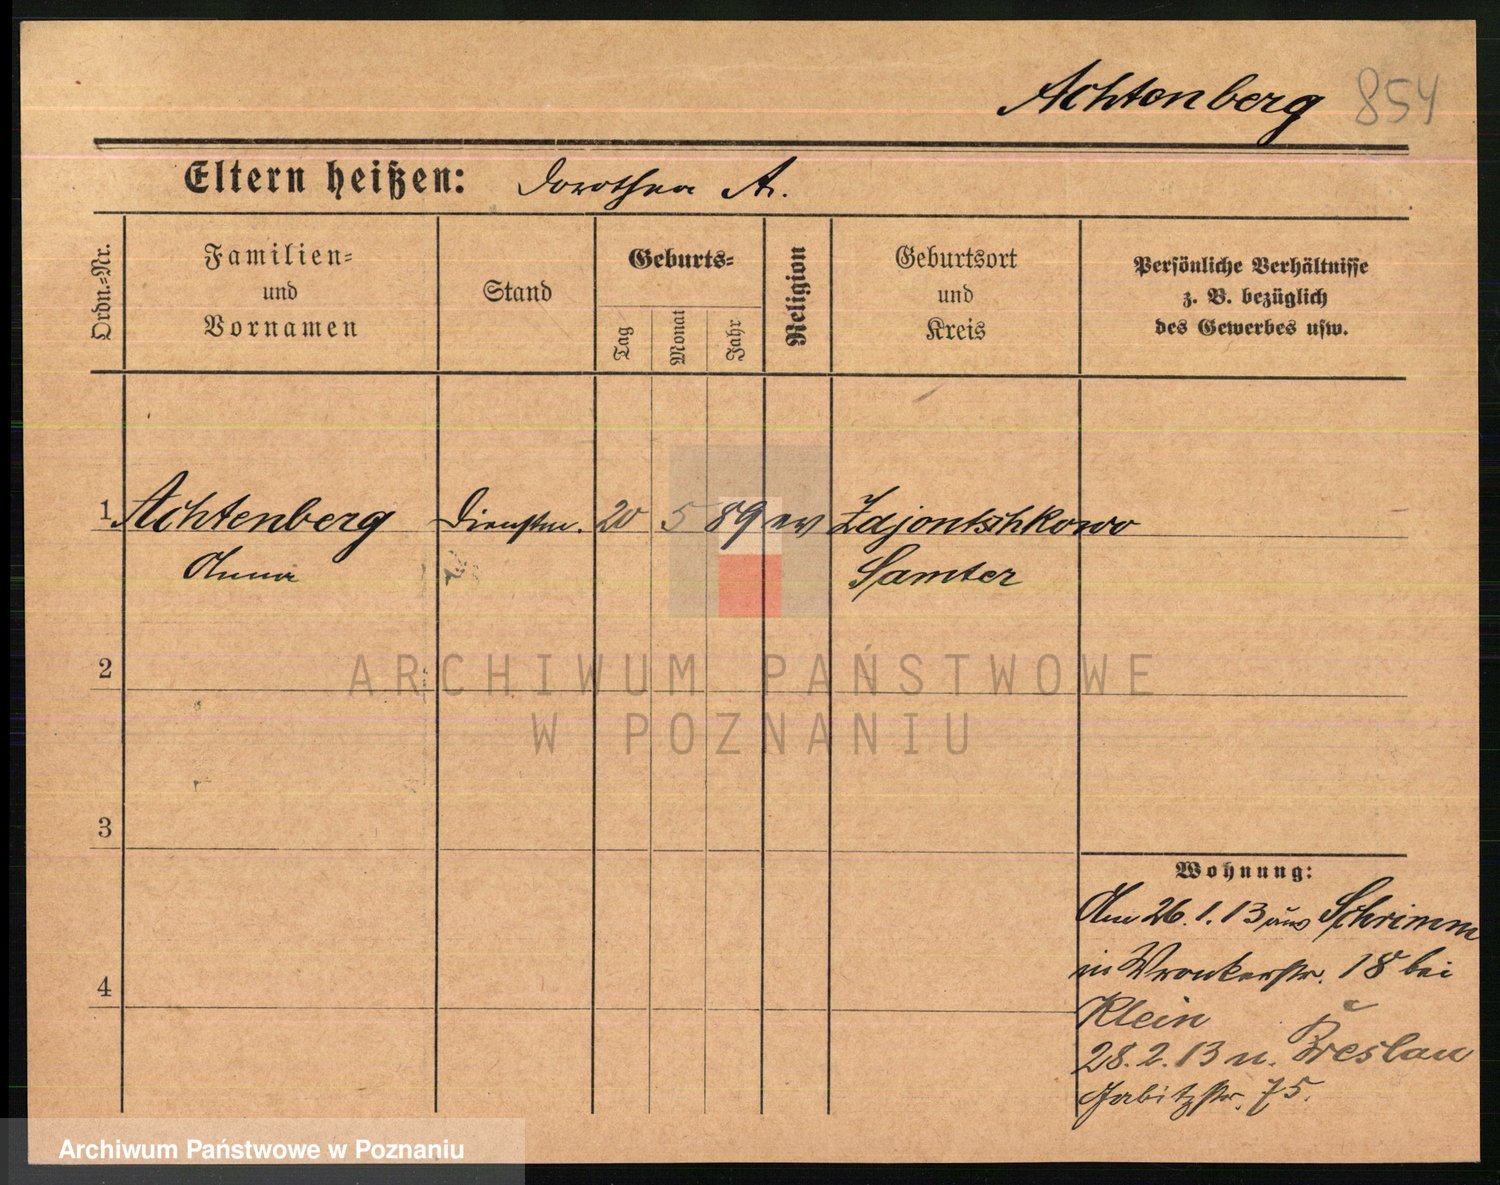 Achtenberg 854
Eltern heißen: Dorothea A.
Ordn.-Nr.
Familien-
und
Vornamen
Stand
Geburts-
Tag
Monat
Jahr
Religion
Geburtsort
und
Kreis
Persönliche Verhältnisse
z. B. bezüglich
des Gewerbes usw.
1 Achtenberg Dienstm. 20 5 89 ev Zdjontschkowo
Anna Samter
2
3
4
Wohnung:
Am 26.1.13 aus Schrimm
in Wronkerstr. 18 bei
Klein
28.2.13 n. Breslau
Gabitzstr. 75.
ARCHIWUM PAŃSTWOWE
W POZNANIU
Archiwum Państwowe w Poznaniu